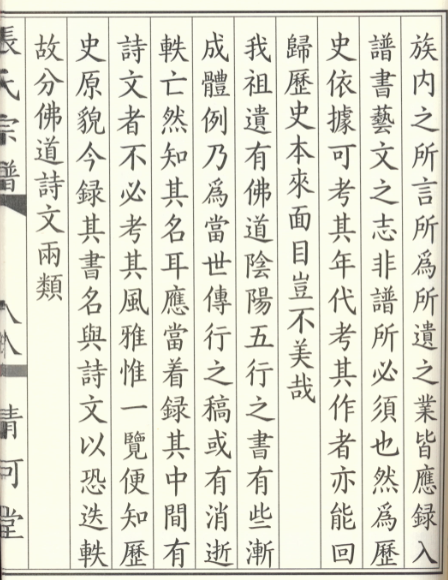 族内之所言所爲所遺之業皆應録入
譜書藝文之志非譜所必須也然爲歷
史依據可考其年代考其作者亦能回
歸歷史本來面目豈不美哉
我祖遺有佛道陰陽五行之書有些漸
成體例乃爲當世傳行之稿或有消逝
軼亡然知其名耳應當着録其中間有
詩文者不必考其風雅惟一覽便知歷
史原貌今録其書名與詩文以恐迭軼
故分佛道詩文兩類
張氏宗譜
清河堂